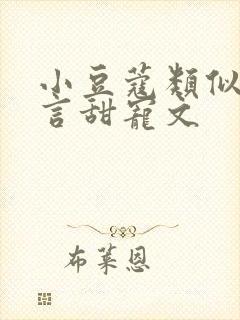 小豆蔻類似
言甜寵文
布萊恩